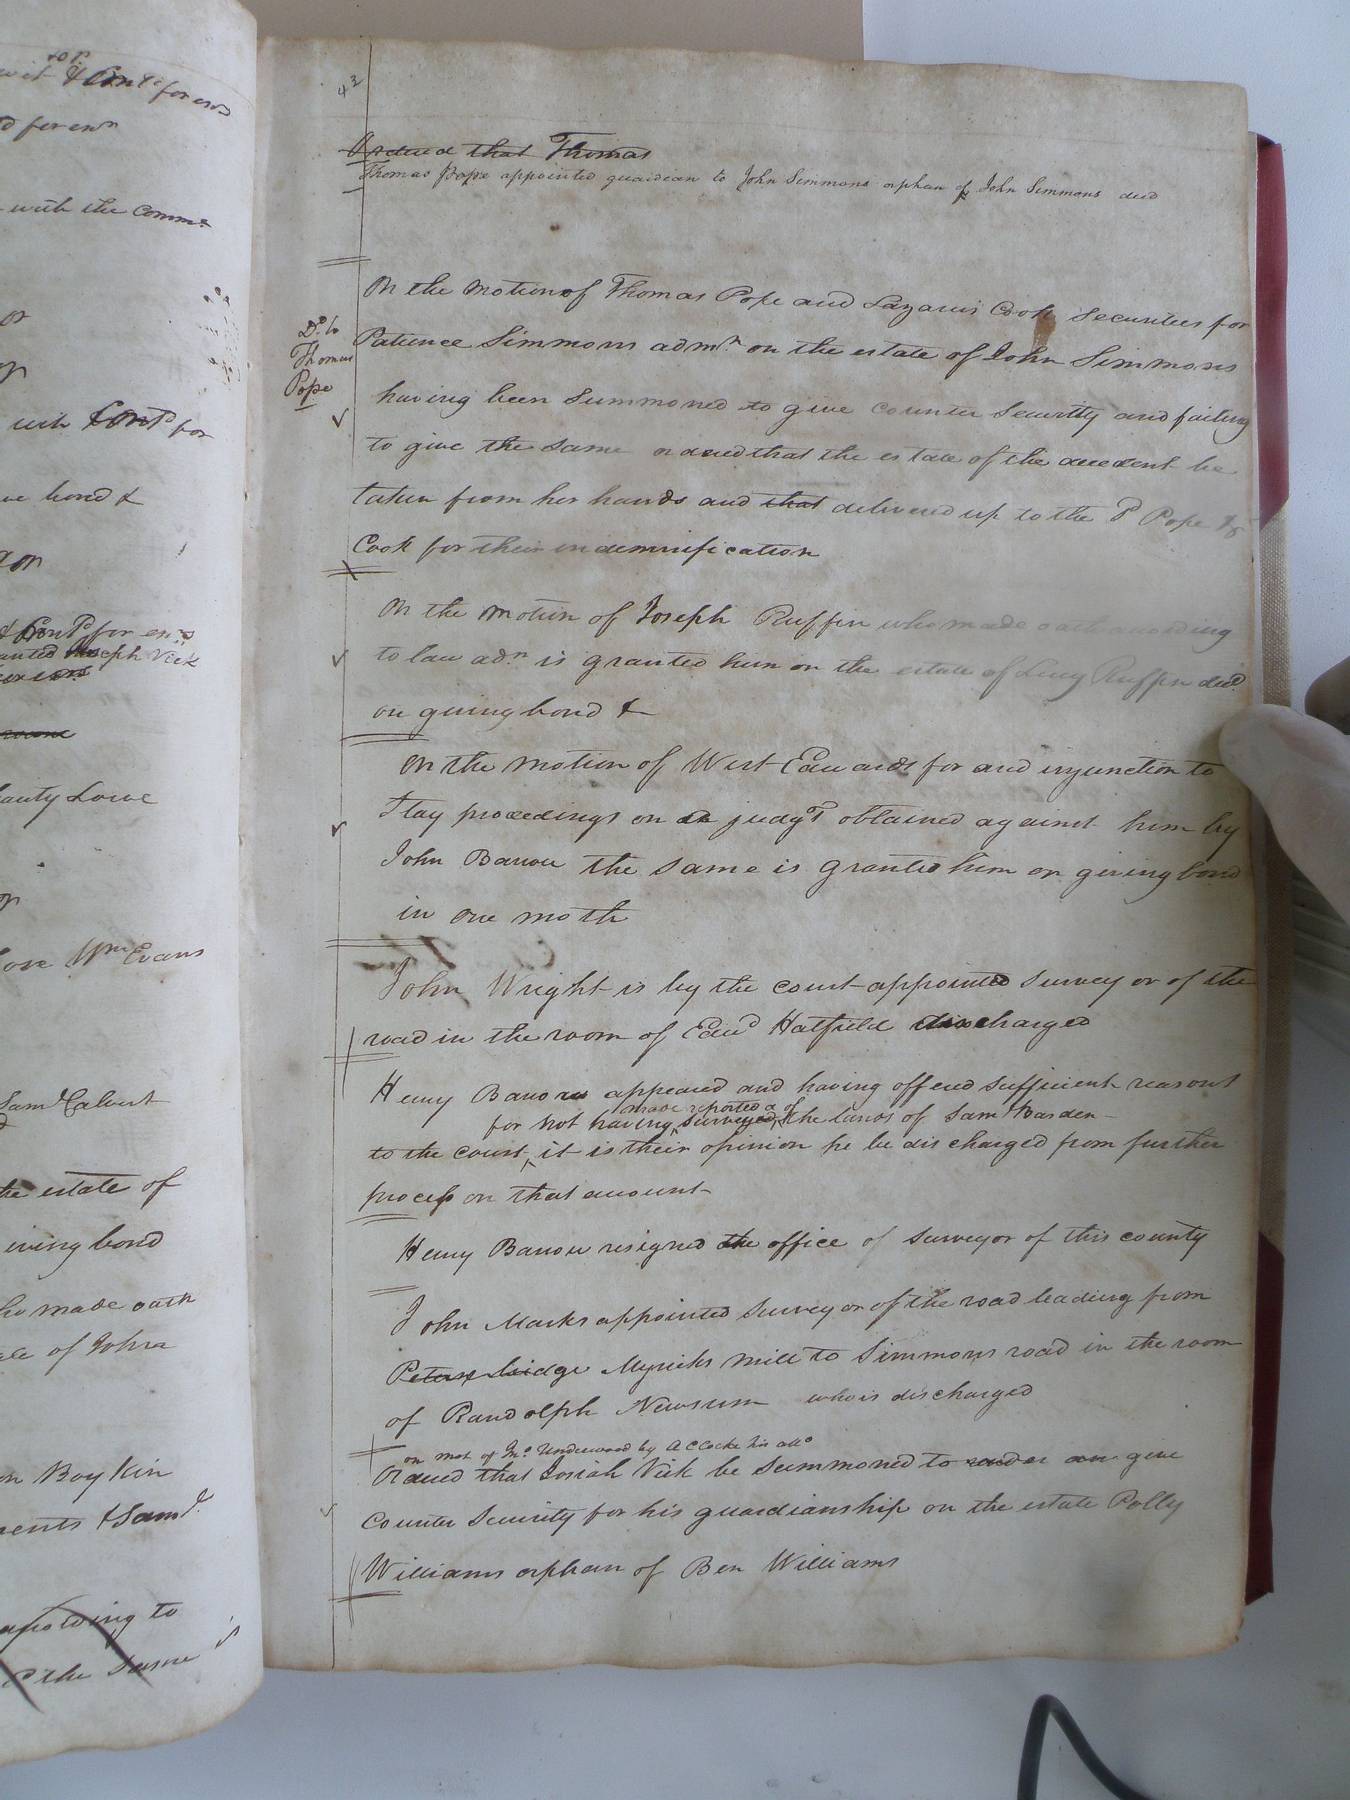 43
Ordered that Thomas
Thomas Pope appointed guardian to John Simmons orphan of John Simmons decd
On the motion of Thomas Pope and Lazarus Cook securities for
Do to
Thomas
Pope
Patience Simmons admr on the estate of John Simmons
having been summoned to give counter security and failing
to give the same ordered that the estate of the decedent be
taken from her hands and that delivered up to the sd Pope &
Cook for their indemnification
On the motion of Joseph Ruffin who made oath according
to law adn is granted him on the estate of Lucy Ruffin decd
on giving bond &
On the motion of West Edwards for and injunction to
Stay proceedings on a judgt obtained against him by
John Barrow the same is granted him on giving bond
in one moth
John Wright is by the court appointed Surveyor of the
road in the room of Edwd Hatfield discharged
Henry Barrow appeared and having offered sufficient reasons
for not having surveyed made reported a of the lands of Sam Barden
to the court it is their opinion he be discharged from further
process on that amount
Henry Barrow resigned the office of Surveyor of this county
John Marks appointed Surveyor of the road leading from
Peters bridge Myricks mill to Simmons road in the room
of Randolph Newsum who is discharged
on mot of Jno Underwood by A C Cocke his atto
Ordered that Josiah Vick be summoned to give
counter Security for his guardianship on the estate Polly
Williams orphan of Ben Williams
with the Commr
bond &
Joseph Vick
Lowe
Wm Evans
Saml Calvert
the estate of
giving bond
who made oath
of John
Boykin
& Saml
according to
the same